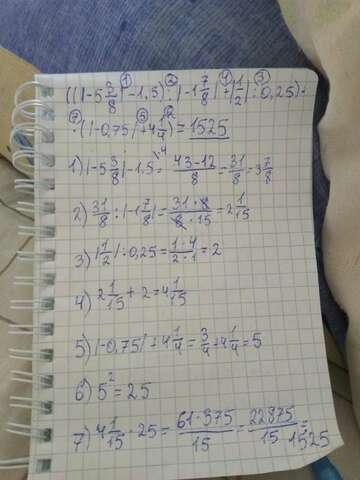 ((|-5 3/8|-1,5):|-1 7/8|+|1/2|:0,25)·
·(|-0,75|+4 1/4)²=1525
1) |-5 3/8|-1,5=43-12/8=31/8=3 7/8
2) 31/8:|-1 7/8|=31·8/8·15=2 1/15
3) |1/2|:0,25=1·4/2·1=2
4) 2 1/15+2=4 1/15
5) |-0,75|+4 1/4=3/4+4 1/4=5
6) 5²=25
7) 4 1/15·25=61·375/15=22875/15=1525